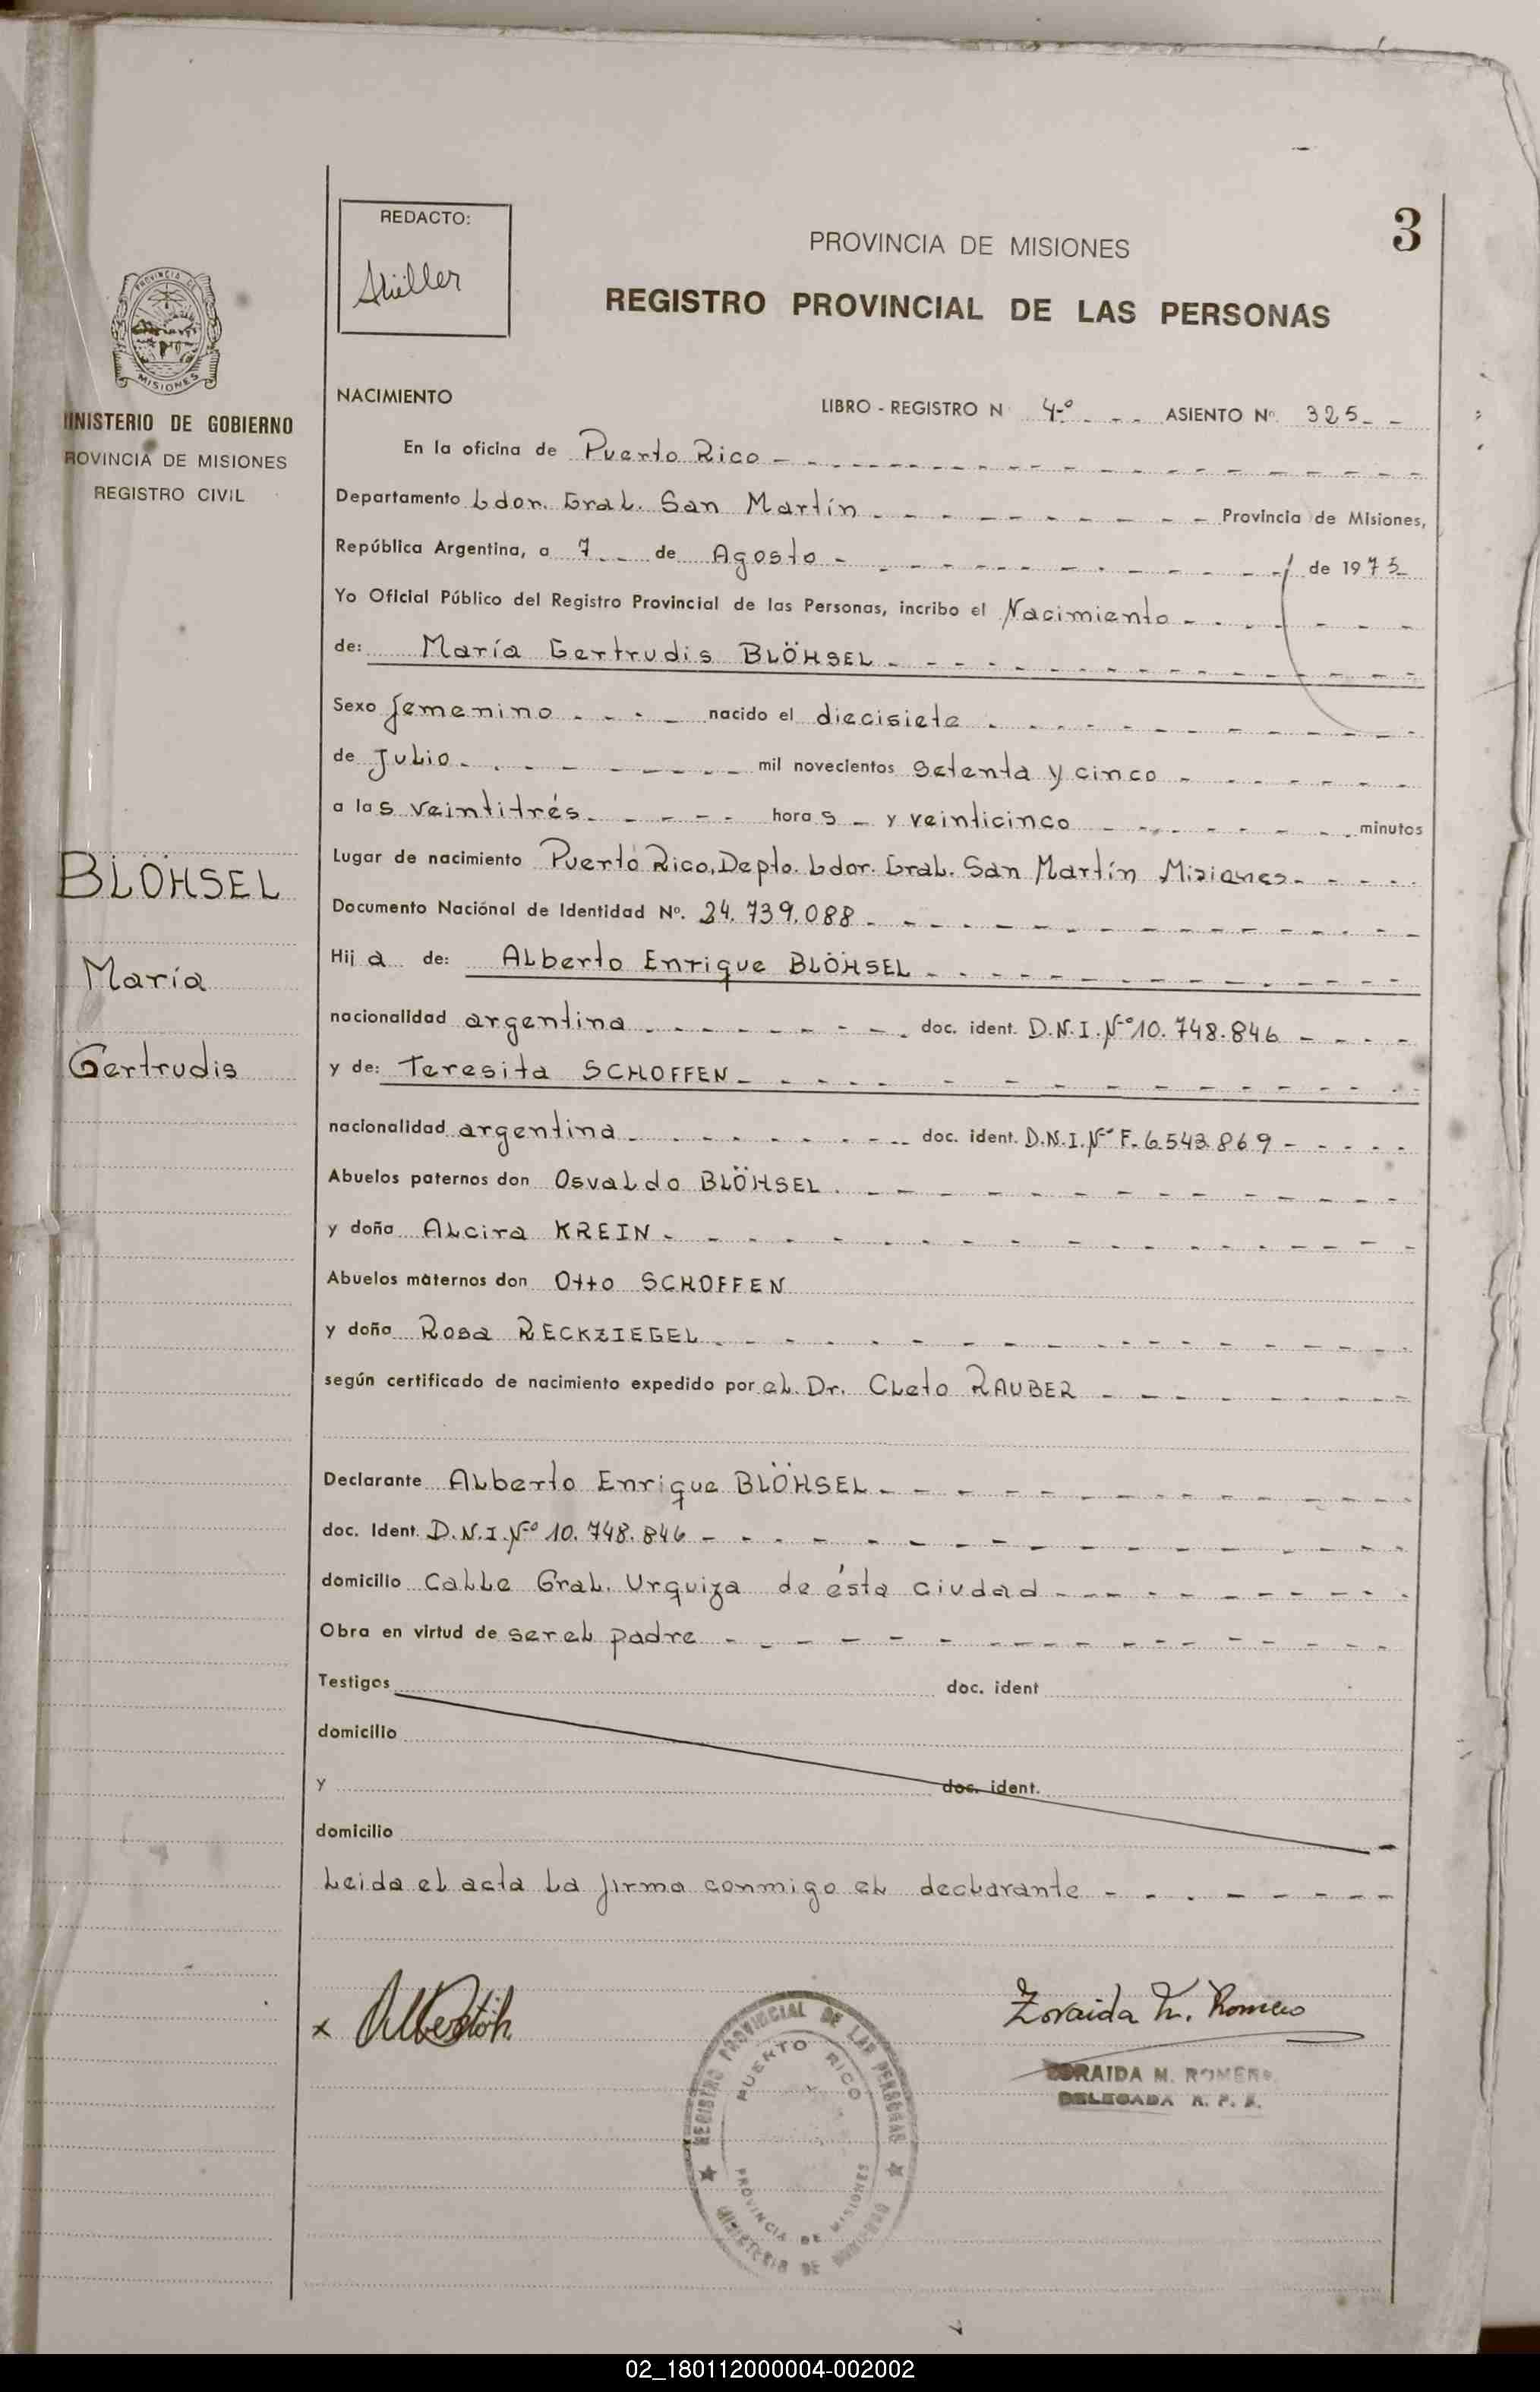 3
REDACTO:
Müller
PROVINCIA DE MISIONES
REGISTRO PROVINCIAL DE LAS PERSONAS
PROVINCIA DE
MISIONES
MINISTERIO DE GOBIERNO
PROVINCIA DE MISIONES
REGISTRO CIVIL
BLÖHSEL
María
Gertrudis
NACIMIENTO
LIBRO - REGISTRO Nº 4º - - - ASIENTO Nº. 325 - -
En la oficina de Puerto Rico -
Departamento Ldor. Gral. San Martín - Provincia de Misiones,
República Argentina, a 7 - de Agosto - de 1975
Yo Oficial Público del Registro Provincial de las Personas, incribo el Nacimiento -
de: María Gertrudis BLÖHSEL -
Sexo femenino - nacido el diecisiete -
de Julio - mil novecientos setenta y cinco -
a las veintitrés - horas - y veinticinco - minutos
Lugar de nacimiento Puerto Rico, Depto. Ldor. Gral. San Martín Misiones -
Documento Naciónal de Identidad Nº. 24.739.088 -
Hija de: Alberto Enrique BLÖHSEL -
nacionalidad argentina - doc. ident. D.N.I.Nº 10.748.846 -
y de: Teresita SCHOFFEN -
nacionalidad argentina - doc. ident. D.N.I.Nº F. 6.543.869 -
Abuelos paternos don Osvaldo BLÖHSEL -
y doña Alcira KREIN -
Abuelos maternos don Otto SCHOFFEN
y doña Rosa RECKZIEGEL -
según certificado de nacimiento expedido por el Dr. Cleto RAUBER -
Declarante Alberto Enrique BLÖHSEL -
doc. Ident. D.N.I.Nº 10.748.846 -
domicilio Calle Gral. Urquiza de ésta ciudad -
Obra en virtud de ser el padre -
Testigos doc. ident
domicilio
y doc. ident.
domicilio
Leida el acta la firma conmigo el declarante -
x
Zoraida M. Romero
ZORAIDA M. ROMERO
DELEGADA R. P. P.
REGISTRO PROVINCIAL DE LAS PERSONAS
PUERTO RICO
PROVINCIA DE MISIONES
MINISTERIO DE GOBIERNO
02_180112000004-002002